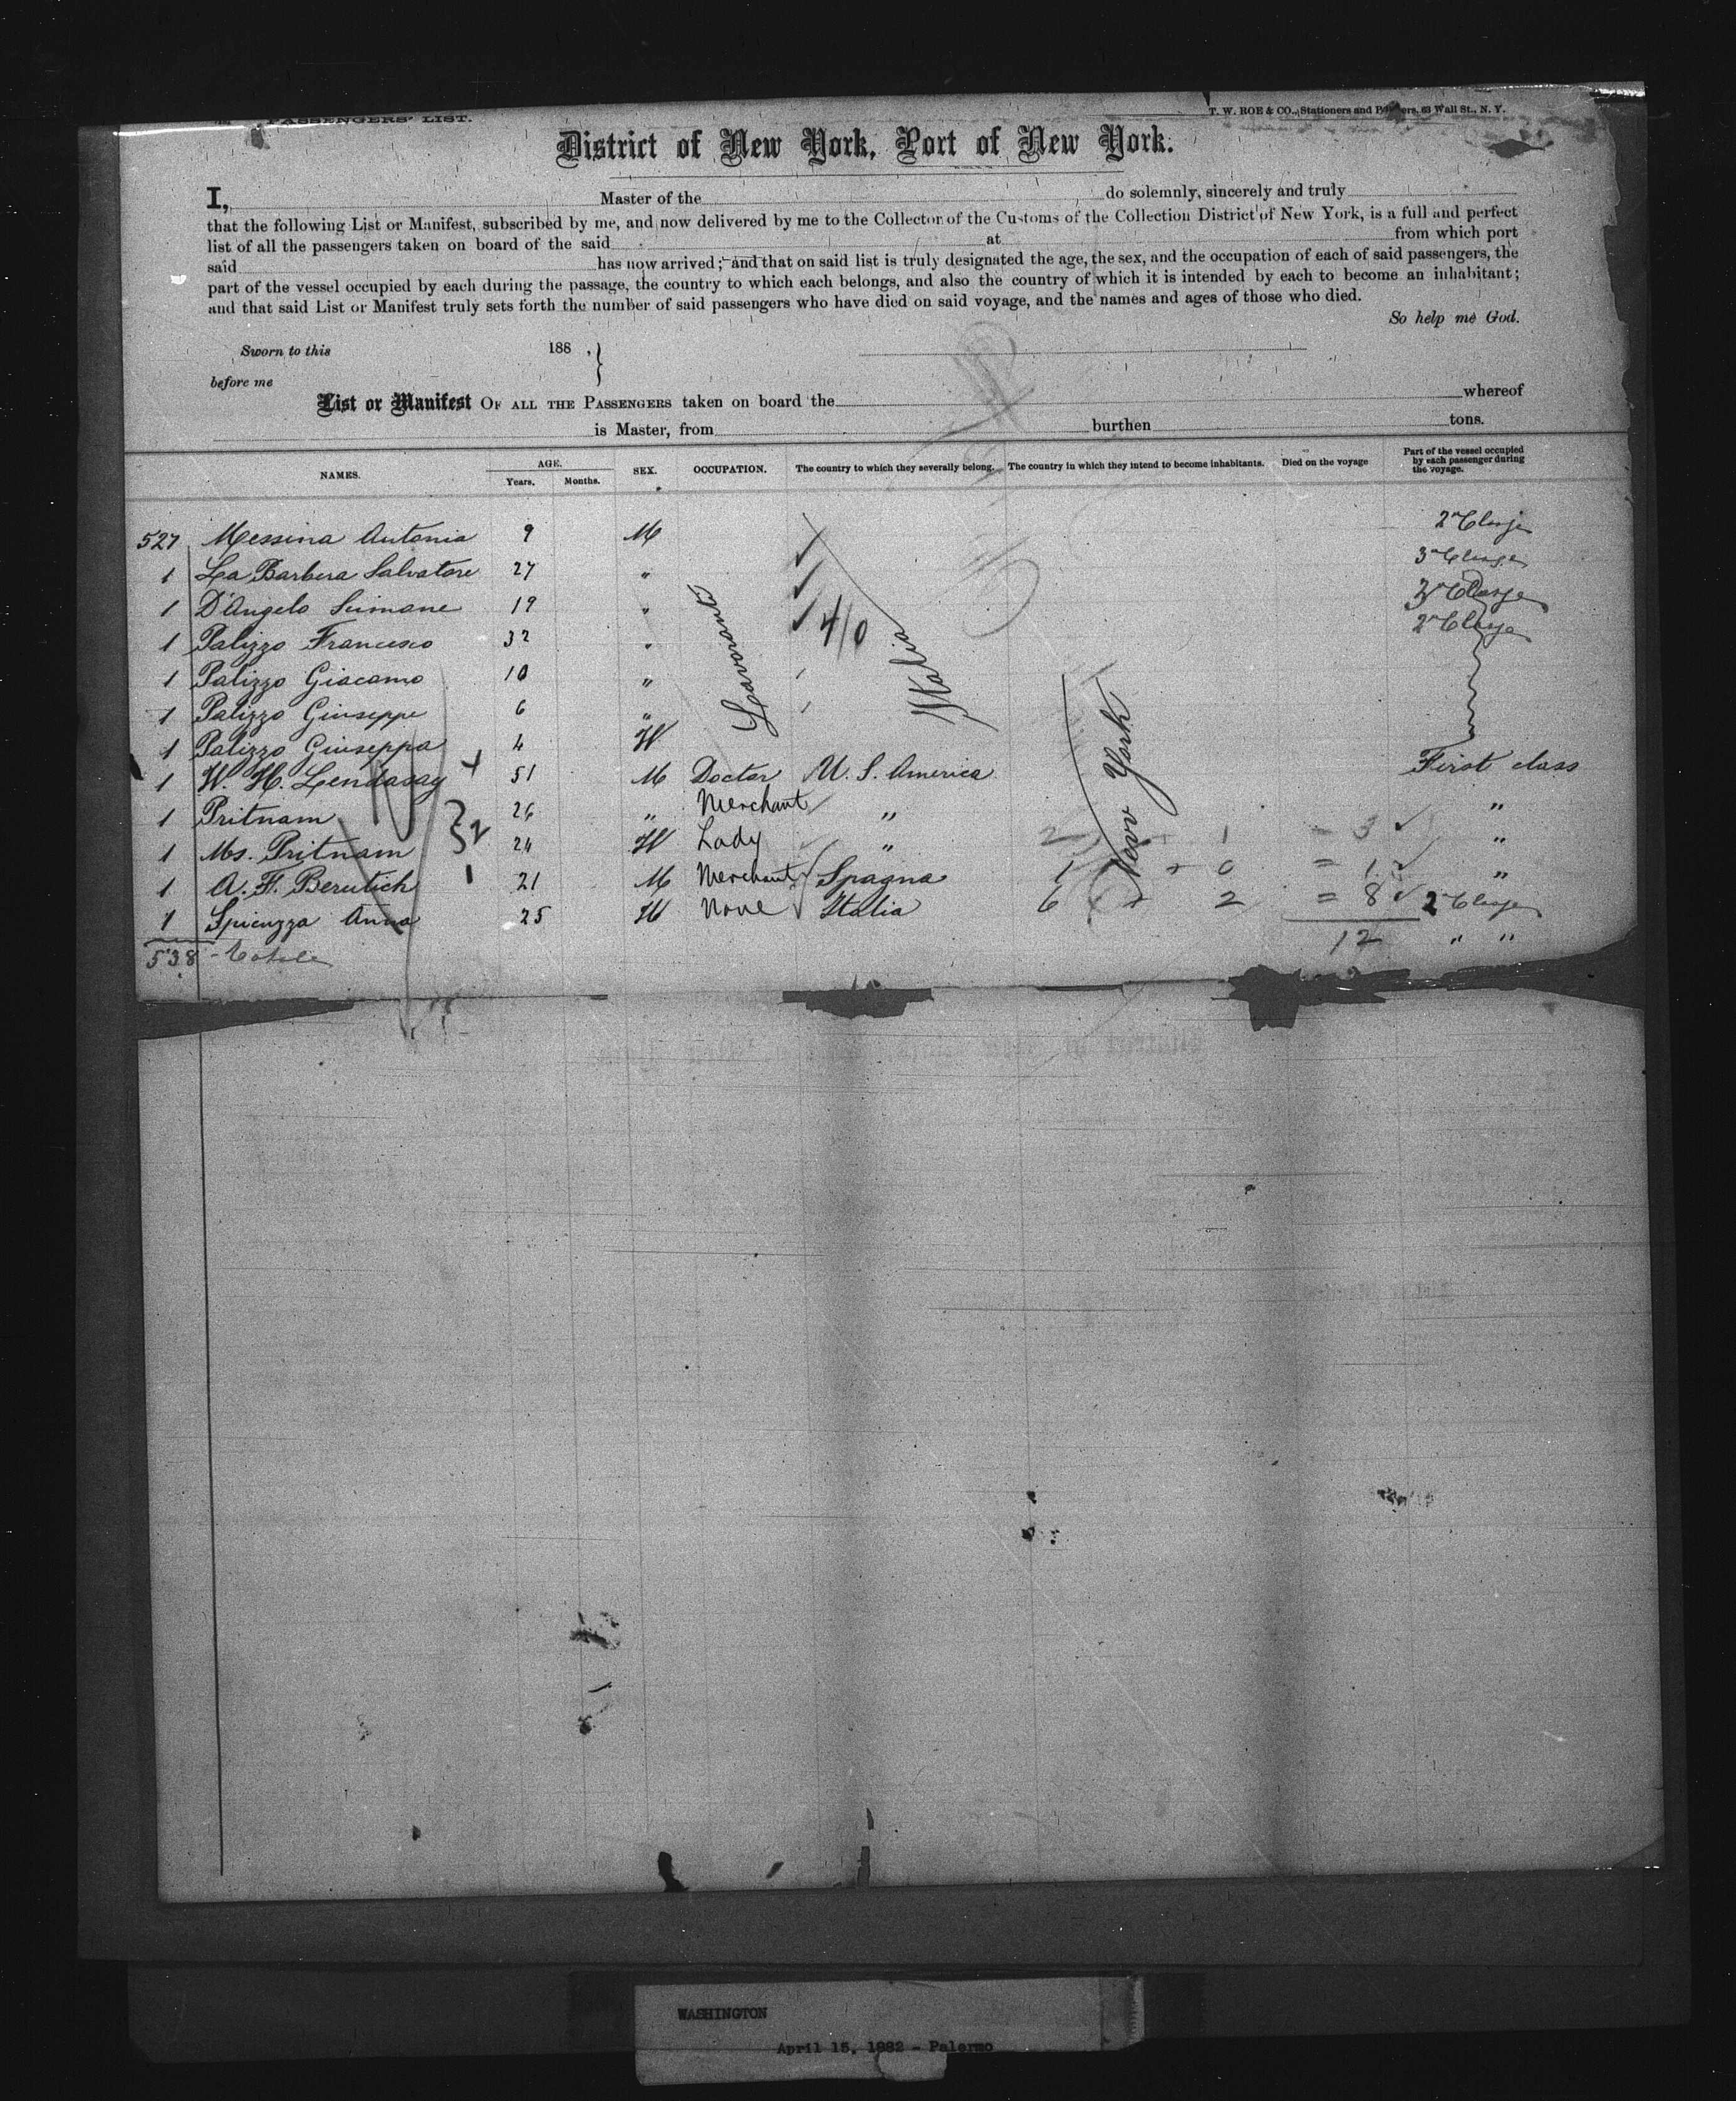 PASSENGERS' LIST.
T. W. ROE & CO., Stationers and Printers, 63 Wall St., N. Y.
District of New York, Port of New York.
I, Master of the do solemnly, sincerely and truly
that the following List or Manifest, subscribed by me, and now delivered by me to the Collector of the Customs of the Collection District of New York, is a full and perfect
list of all the passengers taken on board of the said at from which port
said has now arrived; and that on said list is truly designated the age, the sex, and the occupation of each of said passengers, the
part of the vessel occupied by each during the passage, the country to which each belongs, and also the country of which it is intended by each to become an inhabitant;
and that said List or Manifest truly sets forth the number of said passengers who have died on said voyage, and the names and ages of those who died.
So help me God.
Sworn to this 188 ,
before me
List or Manifest OF ALL THE PASSENGERS taken on board the whereof
is Master, from burthen tons.
NAMES. AGE. Years. Months. SEX. OCCUPATION. The country to which they severally belong. The country in which they intend to become inhabitants. Died on the voyage Part of the vessel occupied by each passenger during the voyage.
527 Messina Antonia 9 M 2 Classe
1 La Barbera Salvatore 27 " 3 Classe
1 D'Angelo Simone 19 " Classe
1 Palizzo Francesco 32 " 2 Classe
4/0
1 Palizzo Giacomo 10 "
1 Palizzo Giuseppe 6 "
1 Palizzo Giuseppa 4 W
Italia
New York
1 W. H. Lendasay 51 M Doctor U. S. America First class
1 Pritnam 26 " Merchant " "
2
1 Ms. Pritnam 24 W Lady " 2 1 = 3 "
1 A. F. Berutich 1 21 M Merchant Spagna 1 + 0 = 1 "
1 Spicuzza Anna 25 W None Italia 6 + 2 = 8 2 Classe
538 - Totale 12 " "
WASHINGTON
April 15, 1882 - Palermo